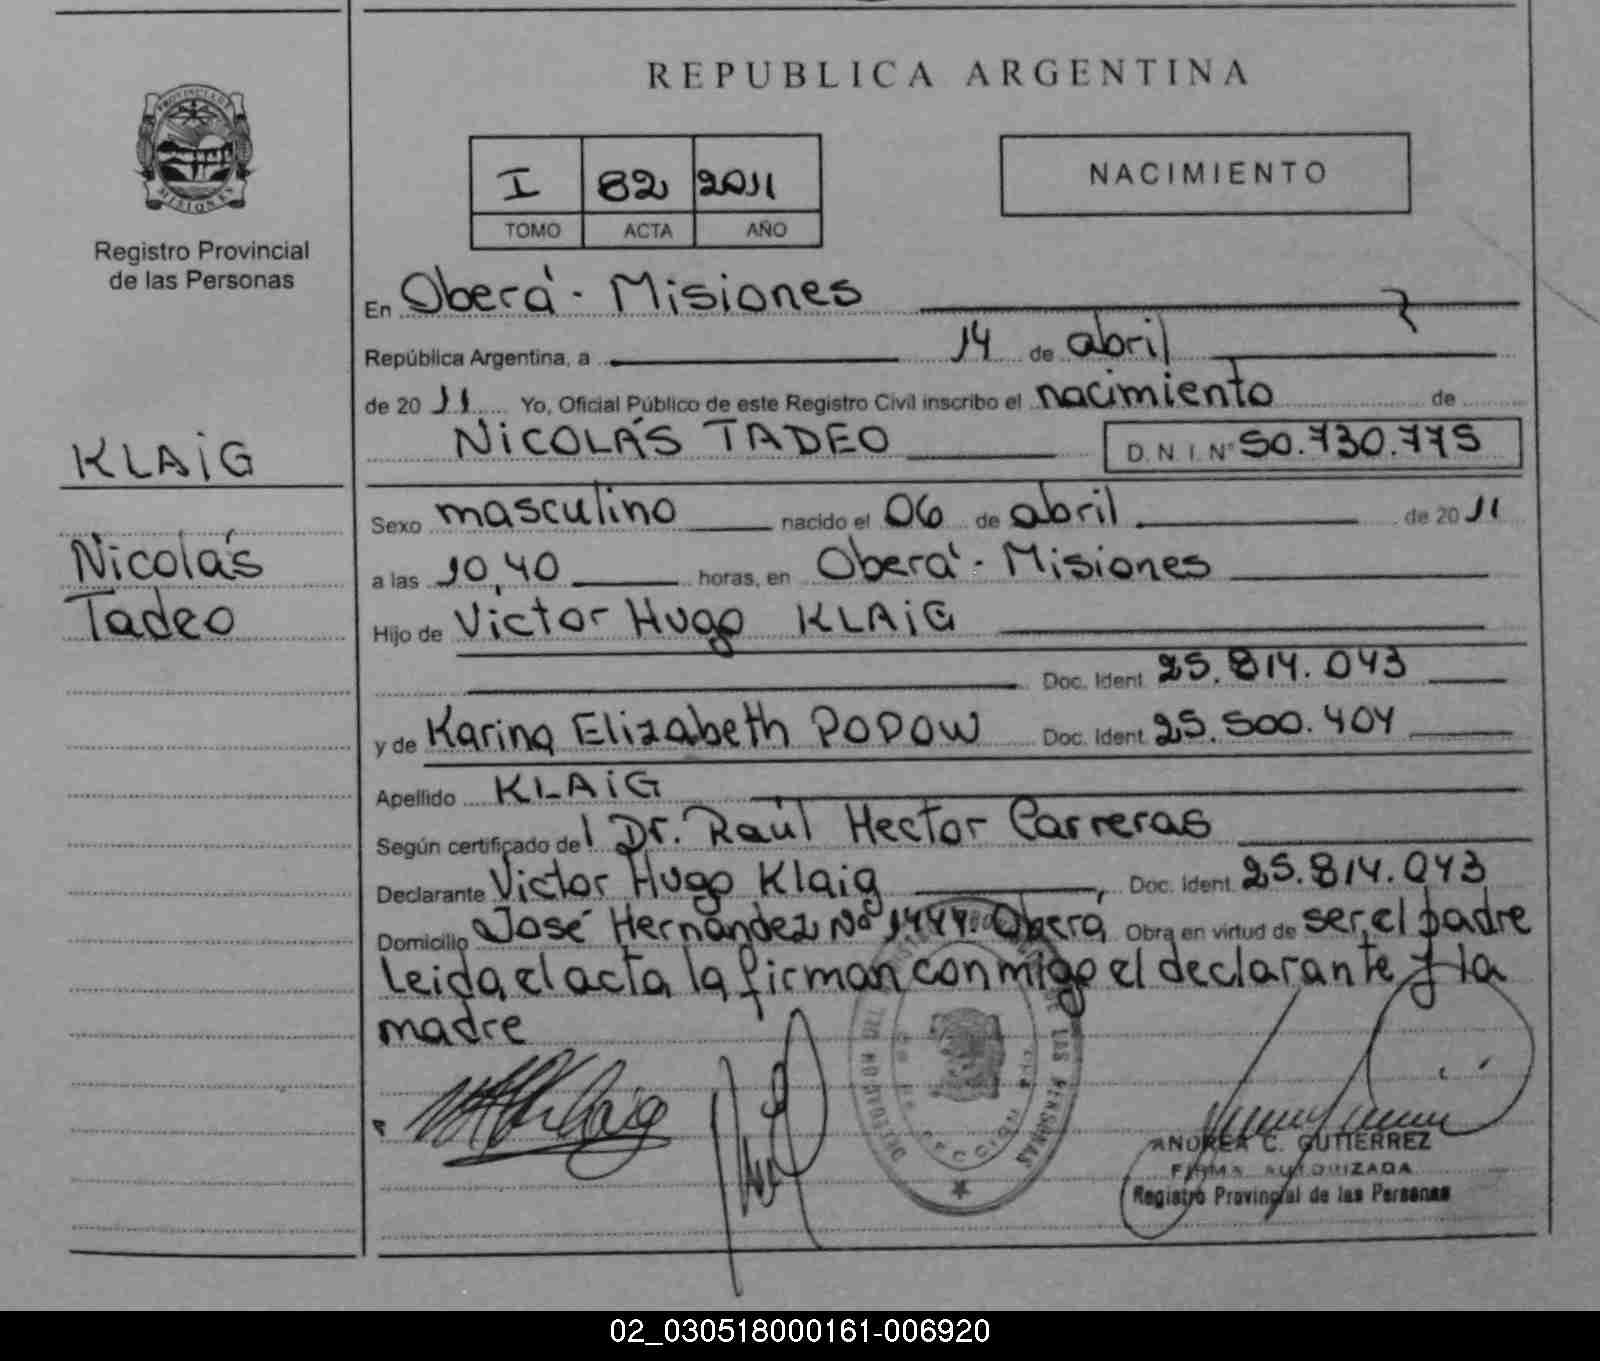 REPUBLICA ARGENTINA
PROVINCIA DE
MISIONES
Registro Provincial
de las Personas
I 82 2011
TOMO ACTA AÑO
NACIMIENTO
En Oberá - Misiones
República Argentina, a 14 de abril
de 2011 Yo, Oficial Público de este Registro Civil inscribo el nacimiento de
NiCOLÁS TADEO D. N. I. Nº 50.730.775
KLAiG
Nicolás
Tadeo
Sexo masculino nacido el 06 de abril de 2011
a las 10,40 horas, en Oberá - Misiones
Hijo de Victor Hugo KLAiG
Doc. Ident. 25.814.043
y de Karina Elizabeth POPOW Doc. Ident. 25.500.404
Apellido KLAiG
Según certificado de Dr. Raúl Hector Carreras
Declarante Victor Hugo Klaig, Doc. Ident. 25.814.043
Domicilio José Hernández Nº 1444. Oberá Obra en virtud de ser el padre
Leida el acta la firman conmigo el declarante y la
madre
DE LAS PERSONAS
ANDREA C. GUTIERREZ
FIRMA AUTORIZADA
Registro Provincial de las Personas
02_030518000161-006920